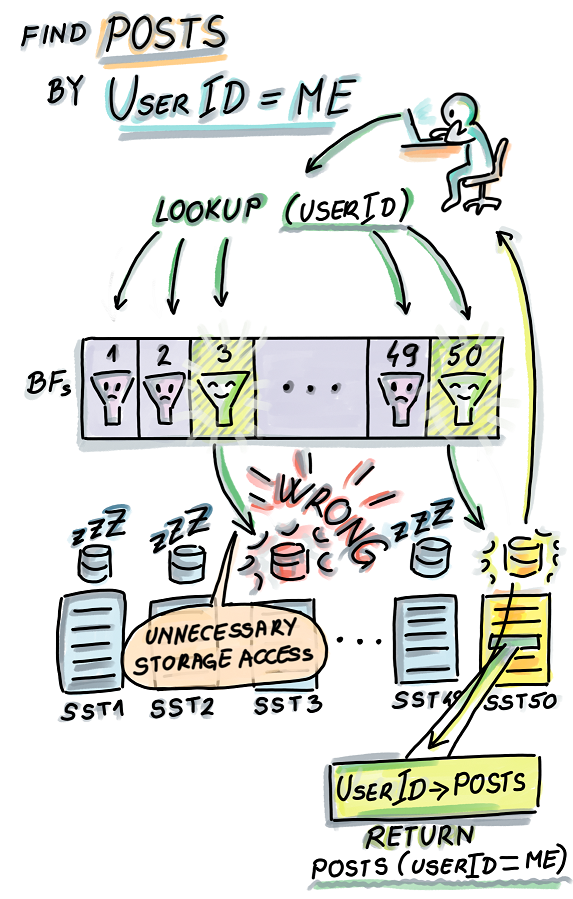 FIND POSTS
BY USER ID = ME
LOOKUP (USERID)
1 2 3 ... 49 50
BFs
WRONG
zzZ zzZ zzZ
UNNECESSARY
STORAGE ACCESS
...
SST1 SST2 SST3 SST49 SST50
USERID→POSTS
RETURN
POSTS (USERID=ME)